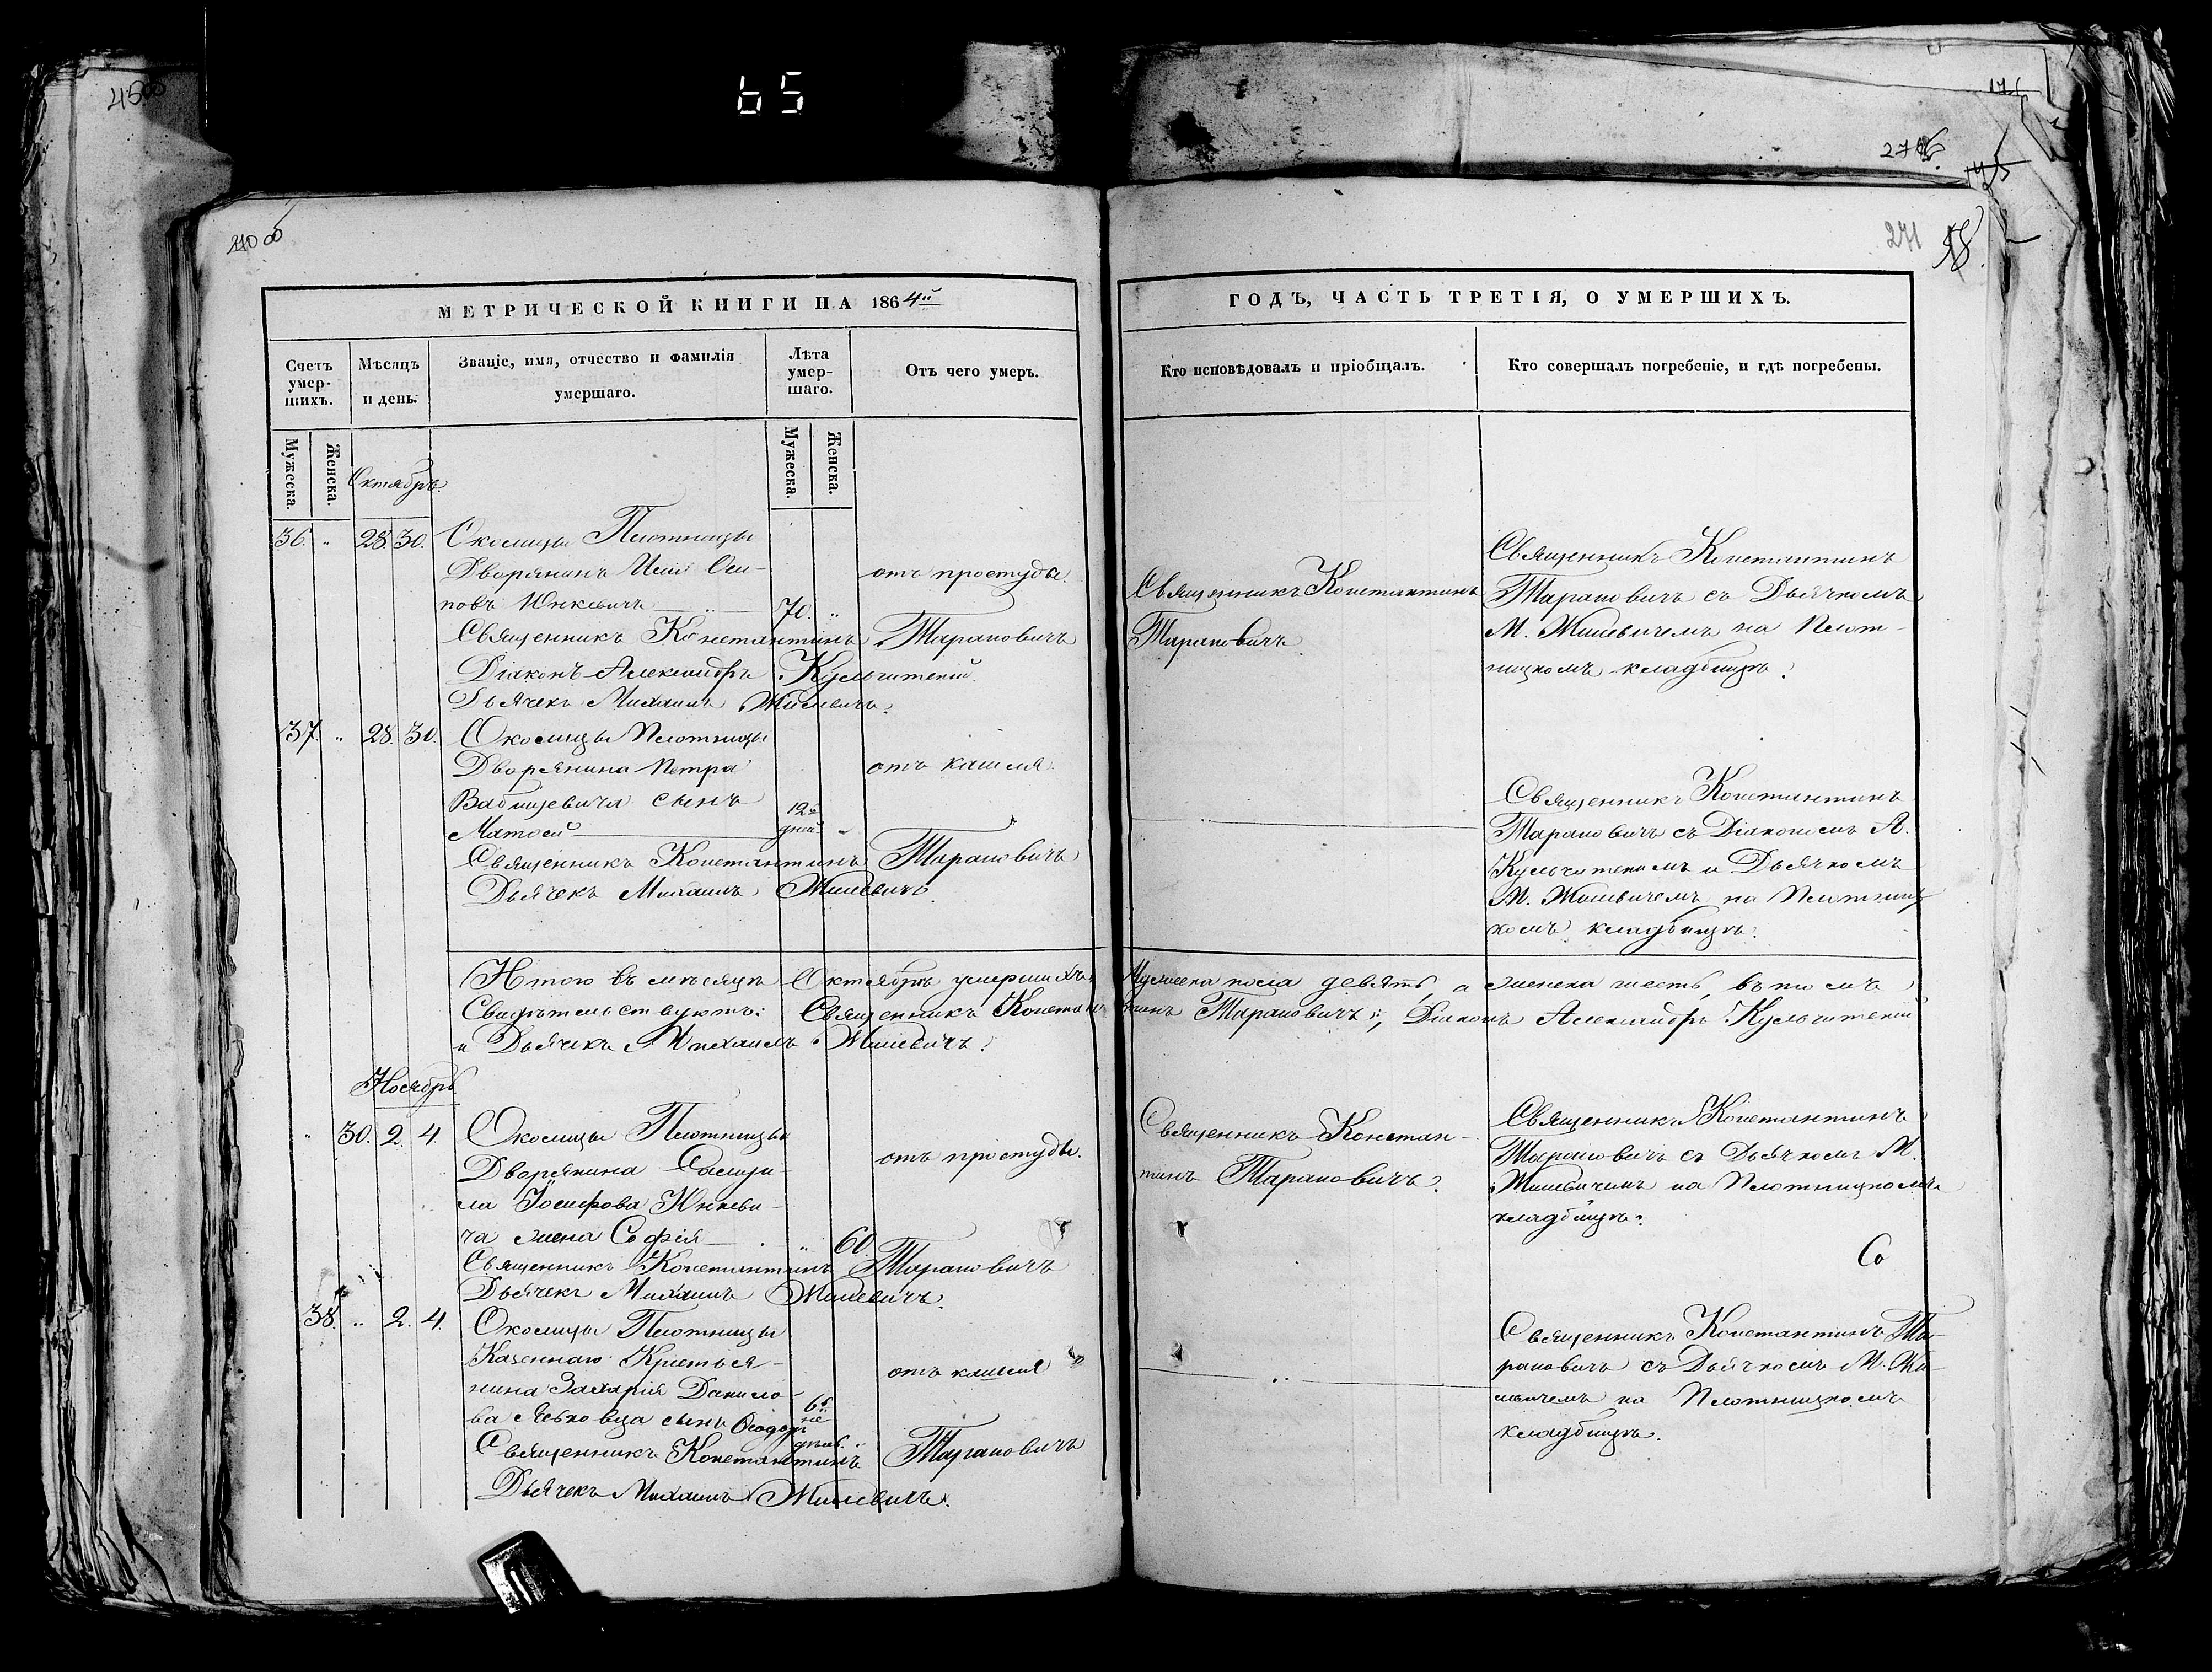 450об
65
276
175
270 об
271
58.
МЕТРИЧЕСКОЙ КНИГИ НА 1864й
ГОДЪ, ЧАСТЬ ТРЕТІЯ, О УМЕРШИХЪ.
Счетъ умер-шихъ.
Мѣсяцъ и день.
Званіе, имя, отчество и фамилія умершаго.
Лѣта умер-шаго.
Отъ чего умеръ.
Кто исповѣдовалъ и пріобщалъ.
Кто совершалъ погребеніе, и гдѣ погребены.
Мужеска. Женска.
Мужеска. Женска.
Октябрь.
36. „ 28. 30. Околицы Плотницы
Дворянинъ Осипъ Оси-
повъ Юнкевичъ 70. „
отъ простуды.
Священникъ Константинъ Тарановичъ
Діаконъ Александръ Кульчитскій
Дьячекъ Михаилъ Жилевичъ.
Священникъ Константинъ
Тарановичъ.
Священникъ Константинъ
Тарановичъ съ Дьячкомъ
М. Жилевичемъ на Плот-
ницкомъ кладбищѣ.
37. „ 28. 30. Околицы Плотницы
Дворянина Петра
Вабищевича сынъ
Матѳей 12й дней „
отъ кашля.
Священникъ Константинъ Тарановичъ
Дьячекъ Михаилъ Жилевичъ.
Священникъ Константинъ
Тарановичъ съ Діакономъ А.
Кульчитскимъ и Дьячкомъ
М. Жилевичемъ на Плотниц
комъ кладбищѣ.
Итого въ мѣсяцѣ Октябрѣ умершихъ Мужеска пола девять, а женска шесть, въ томъ
Свидѣтельствуютъ: Священникъ Константинъ Тарановичъ, Діаконъ Александръ Кульчитскій
и Дьячекъ Михаилъ Жилевичъ.
Ноябрь
„ 30. 2. 4. Околицы Плотницы
Дворянина
ла Іосифова Юнкеви-
ча жена Софія „ 60.
отъ простуды.
Священникъ Константинъ Тарановичъ
Дьячекъ Михаилъ Жилевичъ.
Священникъ Констан-
тинъ Тарановичъ.
Священникъ Константинъ
Тарановичъ съ Дьячкомъ М.
Жилевичемъ на Плотницкомъ
кладбищѣ.
Со
38. „ 2. 4. Околицы Плотницы
Казеннаго Крестья-
нина Захарія Данило-
ва сынъ Ѳеодоръ 6ти не дѣль „
отъ кашля
Священникъ Константинъ Тарановичъ
Дьячекъ Михаилъ Жилевичъ.
Священникъ Константинъ Та-
рановичъ съ Дьячкомъ М. Жи-
левичемъ на Плотницкомъ
кладбищѣ.